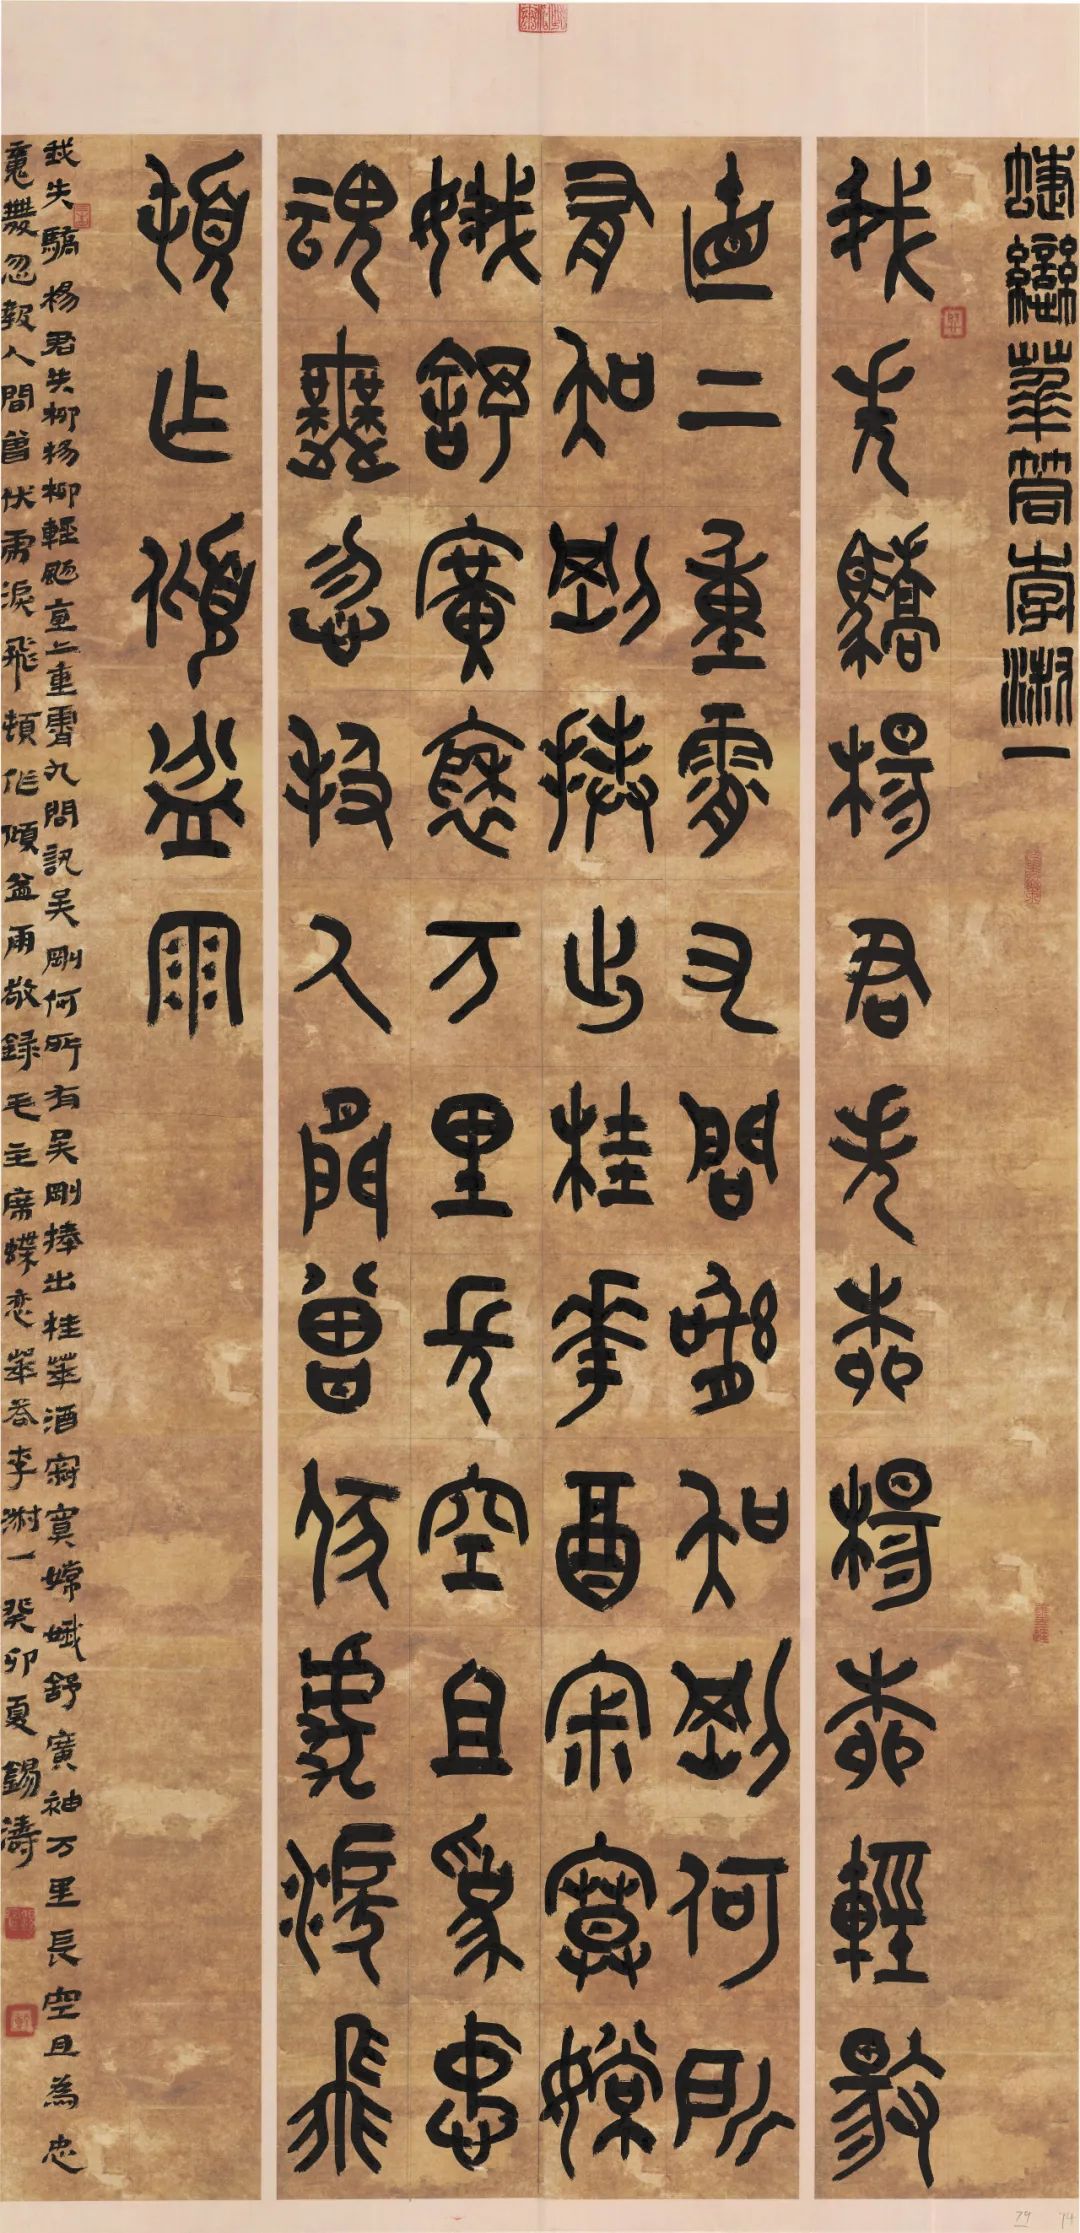 蜨戀華荅李淑一
我失驕楊君失柳楊柳輕颺
直二重霄九問訊吳剛何所
有吳剛捧出桂華酒寂寞嫦
娥舒廣褎万里長空且為忠
魂舞忽報人間曾伏虎淚飛
頓作傾盆雨
我失驕楊君失柳楊柳輕颺直上重霄九問訊吳剛何所有吳剛捧出桂華酒寂寞嫦娥舒廣袖万里長空且為忠
魂舞忽報人間曾伏虎淚飛頓作傾盆雨敬録毛主席蝶恋華荅李淑一癸卯夏錫濤
79 74